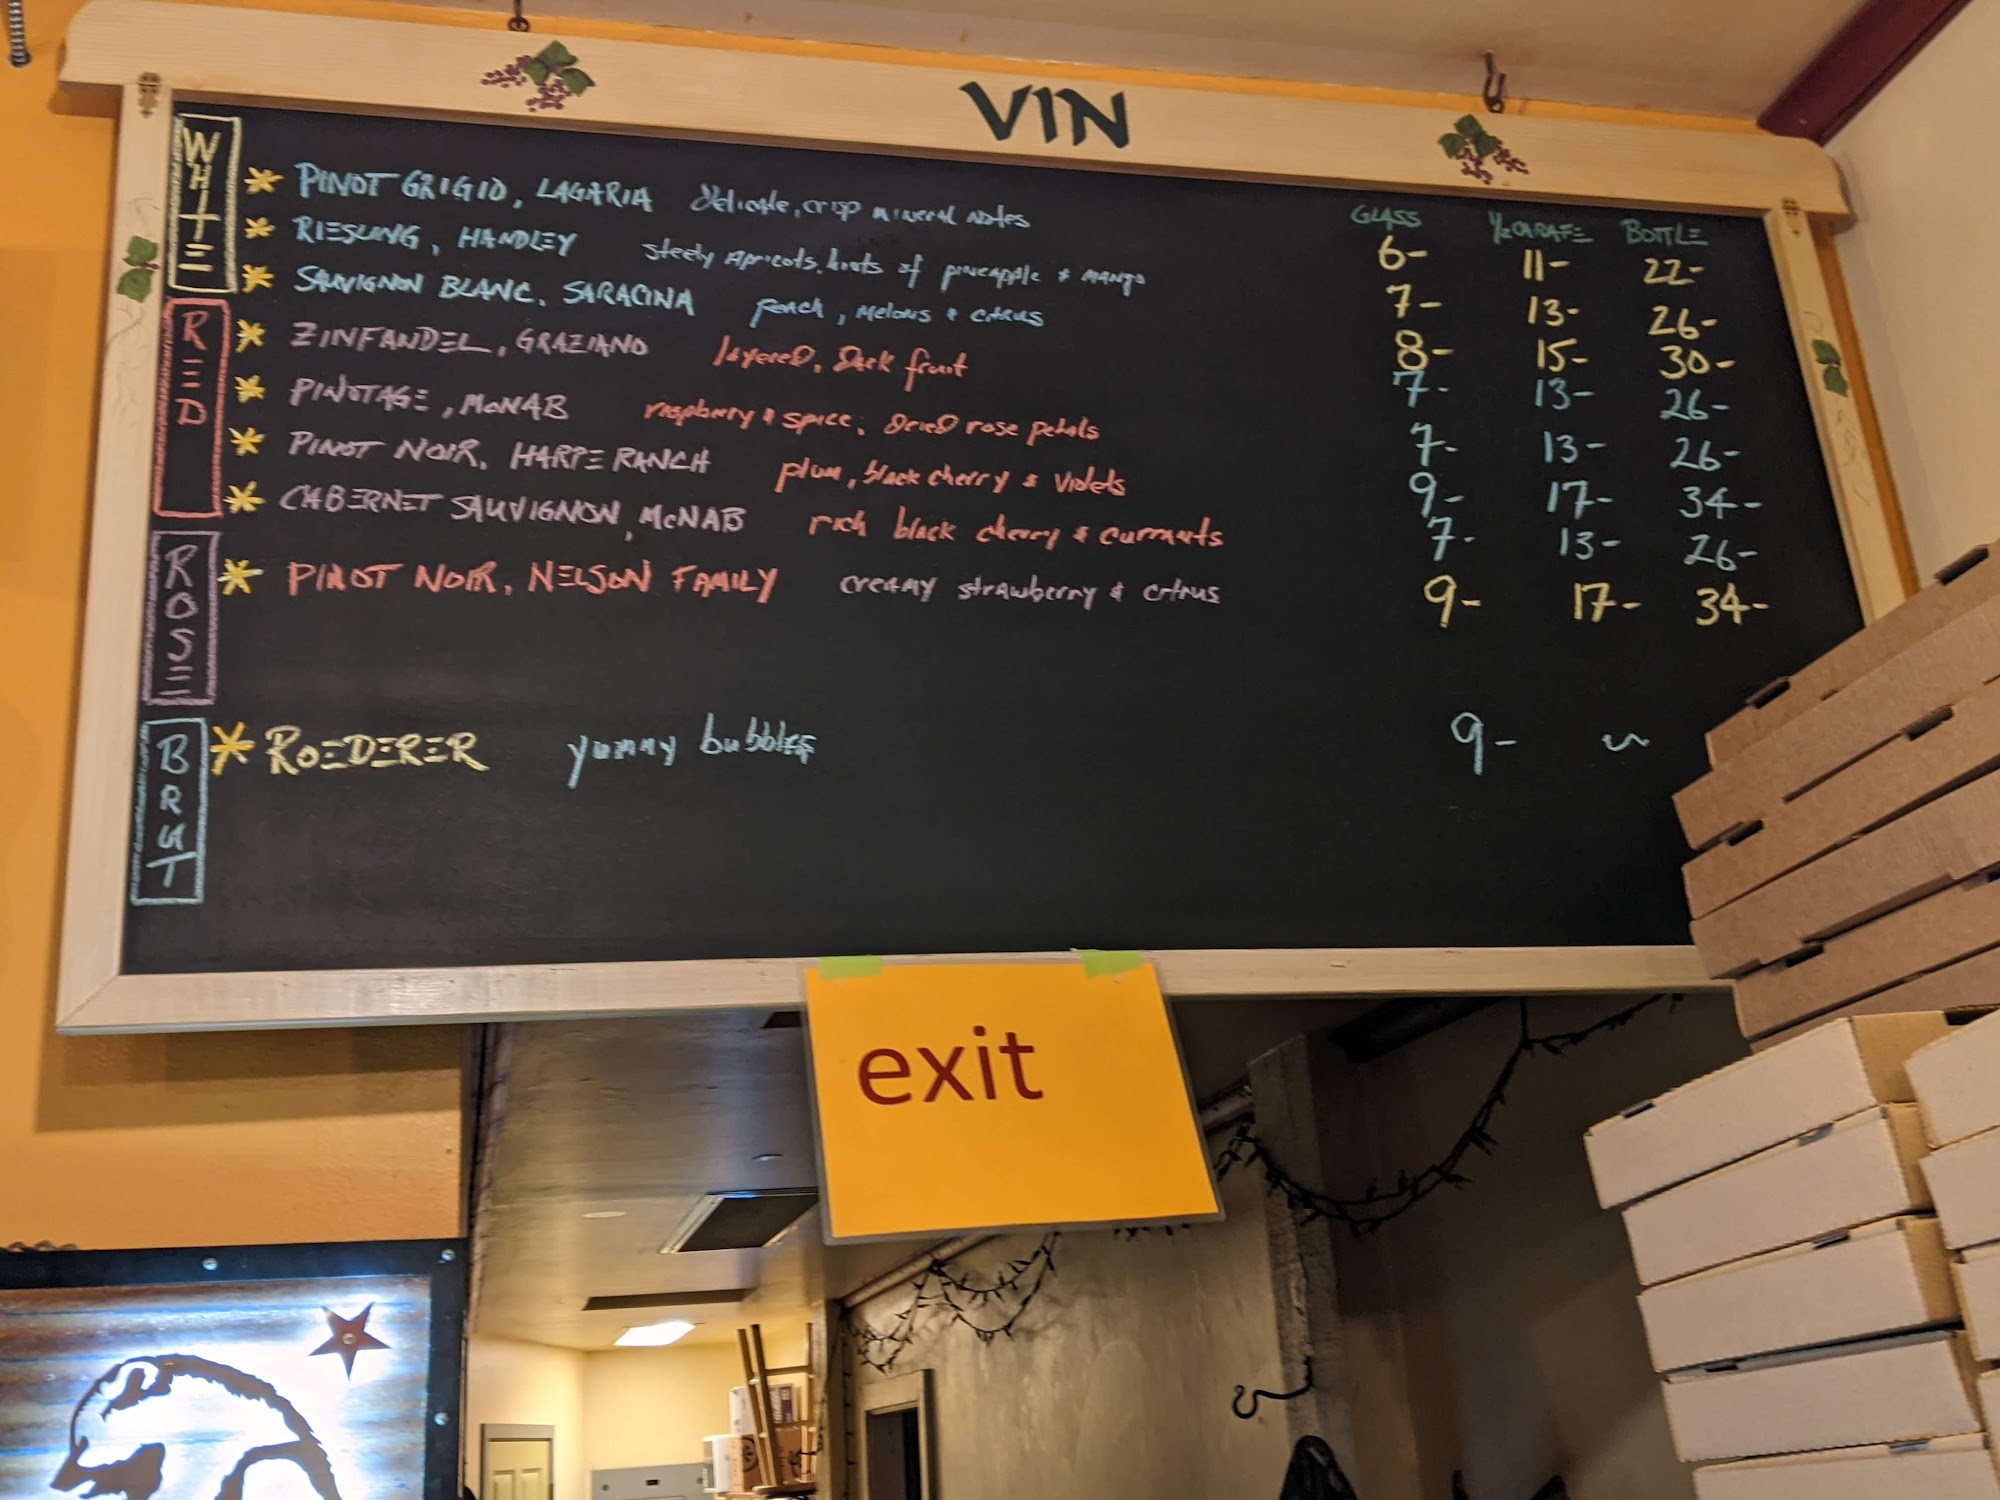 VIN
WHITE
GLASS 1/2 CARAFE BOTTLE
* PINOT GRIGIO, LAGARIA delicate, crisp mineral notes 6- 11- 22-
* RIESLING, HANDLEY steely apricots, hints of pineapple & mango 7- 13- 26-
* SAUVIGNON BLANC, SARACINA peach, melons & citrus 8- 15- 30-
RED
* ZINFANDEL, GRAZIANO layered, dark fruit 7- 13- 26-
* PINOTAGE, McNAB raspberry & spice, dried rose petals 7- 13- 26-
* PINOT NOIR, HARPE RANCH plum, black cherry & violets 9- 17- 34-
* CABERNET SAUVIGNON, McNAB rich black cherry & currants 7- 13- 26-
ROSE
* PINOT NOIR, NELSON FAMILY creamy strawberry & citrus 9- 17- 34-
BRUT
* ROEDERER yummy bubbles 9- ~
exit